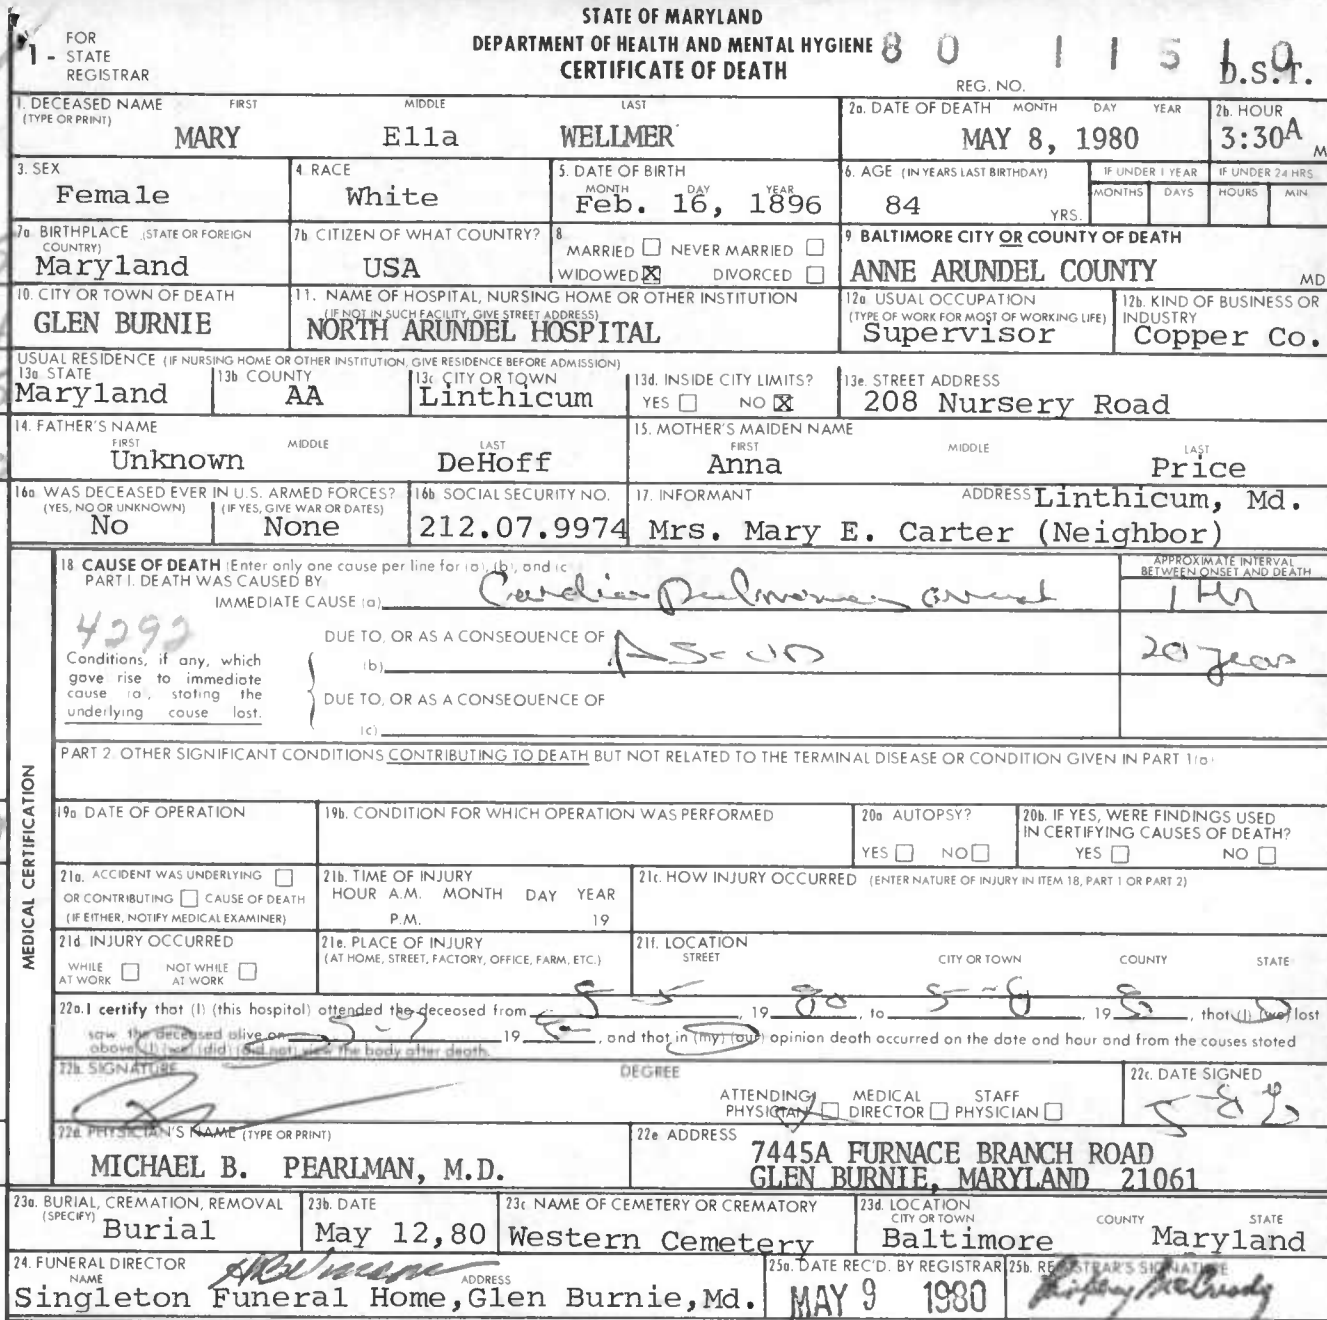 STATE OF MARYLAND
DEPARTMENT OF HEALTH AND MENTAL HYGIENE
CERTIFICATE OF DEATH
1 - FOR STATE REGISTRAR
80 11510
REG. NO.
D.S.T.
1. DECEASED NAME (TYPE OR PRINT) FIRST MIDDLE LAST
MARY Ella WELLMER
2a. DATE OF DEATH MONTH DAY YEAR
MAY 8, 1980
2b. HOUR
3:30A M
3. SEX
Female
4. RACE
White
5. DATE OF BIRTH
MONTH DAY YEAR
Feb. 16, 1896
6. AGE (IN YEARS LAST BIRTHDAY)
84 YRS.
IF UNDER 1 YEAR
MONTHS DAYS
IF UNDER 24 HRS.
HOURS MIN.
7a. BIRTHPLACE (STATE OR FOREIGN COUNTRY)
Maryland
7b. CITIZEN OF WHAT COUNTRY?
USA
8.
MARRIED ☐ NEVER MARRIED ☐
WIDOWED ☒ DIVORCED ☐
9. BALTIMORE CITY OR COUNTY OF DEATH
ANNE ARUNDEL COUNTY MD
10. CITY OR TOWN OF DEATH
GLEN BURNIE
11. NAME OF HOSPITAL, NURSING HOME OR OTHER INSTITUTION
(IF NOT IN SUCH FACILITY, GIVE STREET ADDRESS)
NORTH ARUNDEL HOSPITAL
12a. USUAL OCCUPATION
(TYPE OF WORK FOR MOST OF WORKING LIFE)
Supervisor
12b. KIND OF BUSINESS OR INDUSTRY
Copper Co.
USUAL RESIDENCE (IF NURSING HOME OR OTHER INSTITUTION, GIVE RESIDENCE BEFORE ADMISSION)
13a. STATE
Maryland
13b. COUNTY
AA
13c. CITY OR TOWN
Linthicum
13d. INSIDE CITY LIMITS?
YES ☐ NO ☒
13e. STREET ADDRESS
208 Nursery Road
14. FATHER'S NAME
FIRST MIDDLE LAST
Unknown DeHoff
15. MOTHER'S MAIDEN NAME
FIRST MIDDLE LAST
Anna Price
16a. WAS DECEASED EVER IN U.S. ARMED FORCES?
(YES, NO OR UNKNOWN) (IF YES, GIVE WAR OR DATES)
No None
16b. SOCIAL SECURITY NO.
212.07.9974
17. INFORMANT ADDRESS Linthicum, Md.
Mrs. Mary E. Carter (Neighbor)
MEDICAL CERTIFICATION
18. CAUSE OF DEATH (Enter only one cause per line for (a), (b), and (c)
PART I. DEATH WAS CAUSED BY
IMMEDIATE CAUSE (a) Cardiac Pulmonary arrest
APPROXIMATE INTERVAL BETWEEN ONSET AND DEATH
1 Hr
4292
Conditions, if any, which gave rise to immediate cause (a), stating the underlying cause last.
DUE TO, OR AS A CONSEQUENCE OF
(b) ASCVD
20 years
DUE TO, OR AS A CONSEQUENCE OF
(c)
PART 2. OTHER SIGNIFICANT CONDITIONS CONTRIBUTING TO DEATH BUT NOT RELATED TO THE TERMINAL DISEASE OR CONDITION GIVEN IN PART 1(a)
19a. DATE OF OPERATION
19b. CONDITION FOR WHICH OPERATION WAS PERFORMED
20a. AUTOPSY?
YES ☐ NO ☐
20b. IF YES, WERE FINDINGS USED IN CERTIFYING CAUSES OF DEATH?
YES ☐ NO ☐
21a. ACCIDENT WAS UNDERLYING ☐
OR CONTRIBUTING ☐ CAUSE OF DEATH
(IF EITHER, NOTIFY MEDICAL EXAMINER)
21b. TIME OF INJURY
HOUR A.M. MONTH DAY YEAR
P.M. 19
21c. HOW INJURY OCCURRED (ENTER NATURE OF INJURY IN ITEM 18, PART 1 OR PART 2)
21d. INJURY OCCURRED
WHILE AT WORK ☐ NOT WHILE AT WORK ☐
21e. PLACE OF INJURY
(AT HOME, STREET, FACTORY, OFFICE, FARM, ETC.)
21f. LOCATION
STREET CITY OR TOWN COUNTY STATE
22a. I certify that (I) (this hospital) attended the deceased from 5-5, 19 80, to 5-8, 19 8, that (I) (we) last
saw the deceased alive on 5-7 19 8, and that in (my) (our) opinion death occurred on the date and hour and from the causes stated
above (I) (we) (did) (did not) view the body after death.
22b. SIGNATURE
DEGREE
ATTENDING PHYSICIAN ☐ MEDICAL DIRECTOR ☐ STAFF PHYSICIAN ☐
22c. DATE SIGNED
5-8 80
22d. PHYSICIAN'S NAME (TYPE OR PRINT)
MICHAEL B. PEARLMAN, M.D.
22e. ADDRESS
7445A FURNACE BRANCH ROAD
GLEN BURNIE, MARYLAND 21061
23a. BURIAL, CREMATION, REMOVAL (SPECIFY)
Burial
23b. DATE
May 12,80
23c. NAME OF CEMETERY OR CREMATORY
Western Cemetery
23d. LOCATION
CITY OR TOWN COUNTY STATE
Baltimore Maryland
24. FUNERAL DIRECTOR
NAME ADDRESS
Singleton Funeral Home,Glen Burnie,Md.
25a. DATE REC'D. BY REGISTRAR
MAY 9 1980
25b. REGISTRAR'S SIGNATURE